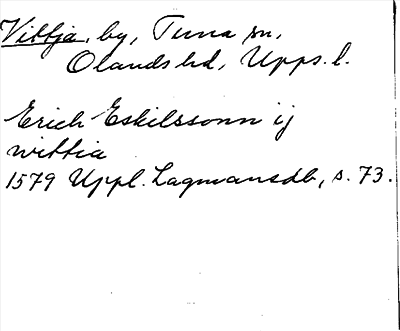 Vittja, by, Tuna sn,
Olands hd, Upps. l.
Erich Eskilssonn ij
wittia
1579 Uppl. Lagmansdb, s. 73.